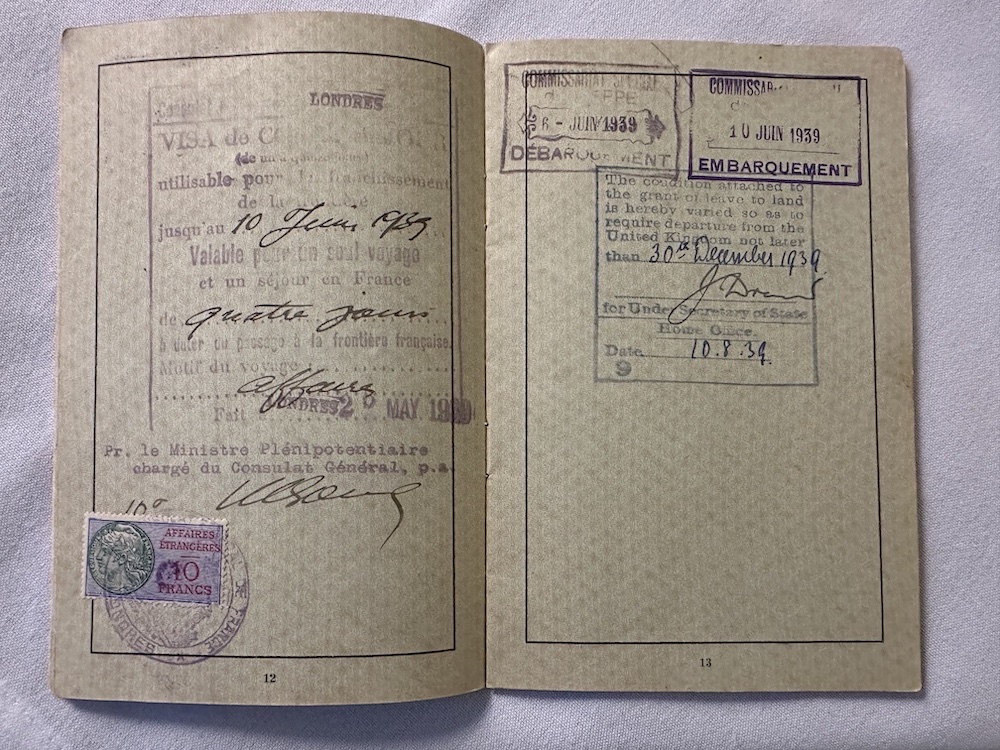 LONDRES
VISA de
utilisable pour
de la
jusqu'au 10 Juin 1939
Valable pour un seul voyage
et un séjour en France
de quatre jours
à dater du passage à la frontière française.
Motif du voyage
affaires
Fait LONDRES 26 MAY 1939
Pr. le Ministre Plénipotentiaire
chargé du Consulat Général, p.a.
AFFAIRES
ÉTRANGÈRES
10
FRANCS
DE FRANCE
LONDRES
12
COMMISSARIAT SPÉCIAL
6 - JUIN 1939
DÉBARQUEMENT
10 JUIN 1939
EMBARQUEMENT
The condition attached to
the grant of leave to land
is hereby varied so as to
require departure from the
United Kingdom not later
than 30th December 1939
for Under Secretary of State
Home Office.
Date 10.8.39.
9
13